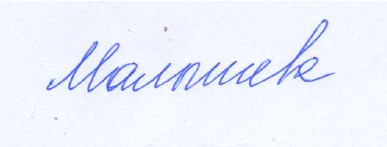 Малышев